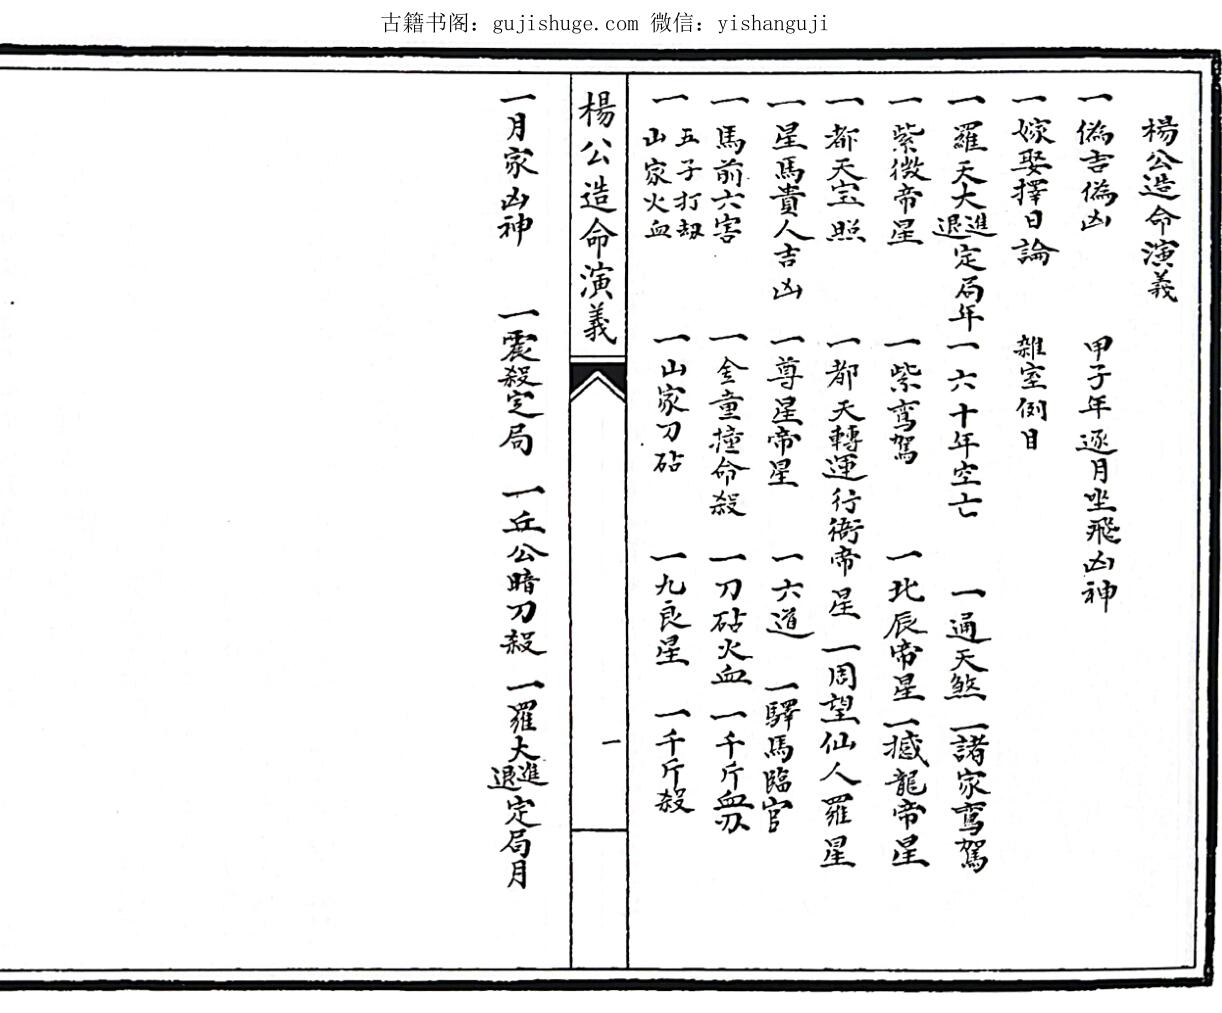 古籍书阁：gujishuge.com 微信：yishanguji
楊公造命演義
一偽吉偽凶 甲子年逐月坐飛凶神
一嫁娶擇日論 雑室倒目
一羅天大進退定局年 一六十年空亡 一通天煞 一諸家鸾駕
一紫微帝星 一紫鸾駕 一北辰帝星 一撼龍帝星
一都天宝照 一都天轉運行衙帝星 一周望仙人羅星
一星馬貴人吉凶 一尊星帝星 一六道 一驛馬臨官
一馬前六害 一金童撞命殺 一刀砧火血 一千斤血刃
一五子打刼山家火血 一山家刀砧 一九良星 一千斤殺
楊公造命演義
一
一月家凶神 一震殺定局 一丘公暗刀殺 一羅大進退定局月